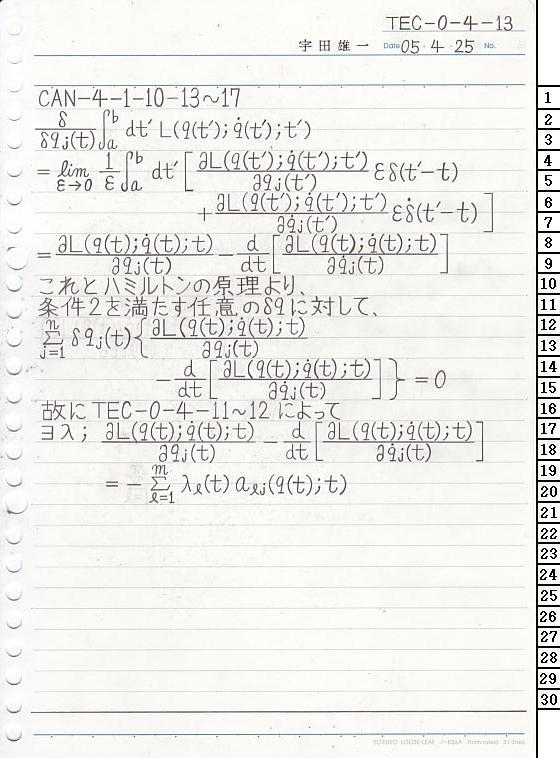 TEC-0-4-13
宇田雄一 Date 05・4・25 No.
CAN-4-1-10-13~17
δ/δq_j(t) ∫_a^b dt′ L(q(t′);q̇(t′);t′)
= lim_{ε→0} 1/ε ∫_a^b dt′ [ ∂L(q(t′);q̇(t′);t′)/∂q_j(t′) εδ(t′-t)
+ ∂L(q(t′);q̇(t′);t′)/∂q̇_j(t′) εδ̇(t′-t) ]
= ∂L(q(t);q̇(t);t)/∂q_j(t) - d/dt [ ∂L(q(t);q̇(t);t)/∂q̇_j(t) ]
これとハミルトンの原理より、
条件2を満たす任意のδqに対して、
Σ_{j=1}^n δq_j(t) { ∂L(q(t);q̇(t);t)/∂q_j(t)
- d/dt [ ∂L(q(t);q̇(t);t)/∂q̇_j(t) ] } = 0
故にTEC-0-4-11~12によって
∃λ; ∂L(q(t);q̇(t);t)/∂q_j(t) - d/dt [ ∂L(q(t);q̇(t);t)/∂q̇_j(t) ]
= - Σ_{ℓ=1}^m λ_ℓ(t) a_ℓj(q(t);t)
1
2
3
4
5
6
7
8
9
10
11
12
13
14
15
16
17
18
19
20
21
22
23
24
25
26
27
28
29
30
KOKUYO LOOSE-LEAF ノ-836A 7mm ruled 31 lines